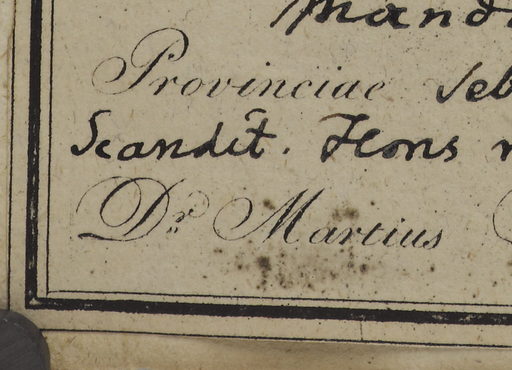 Provinciae Seb
Scandit. Flons
Dr. Martius